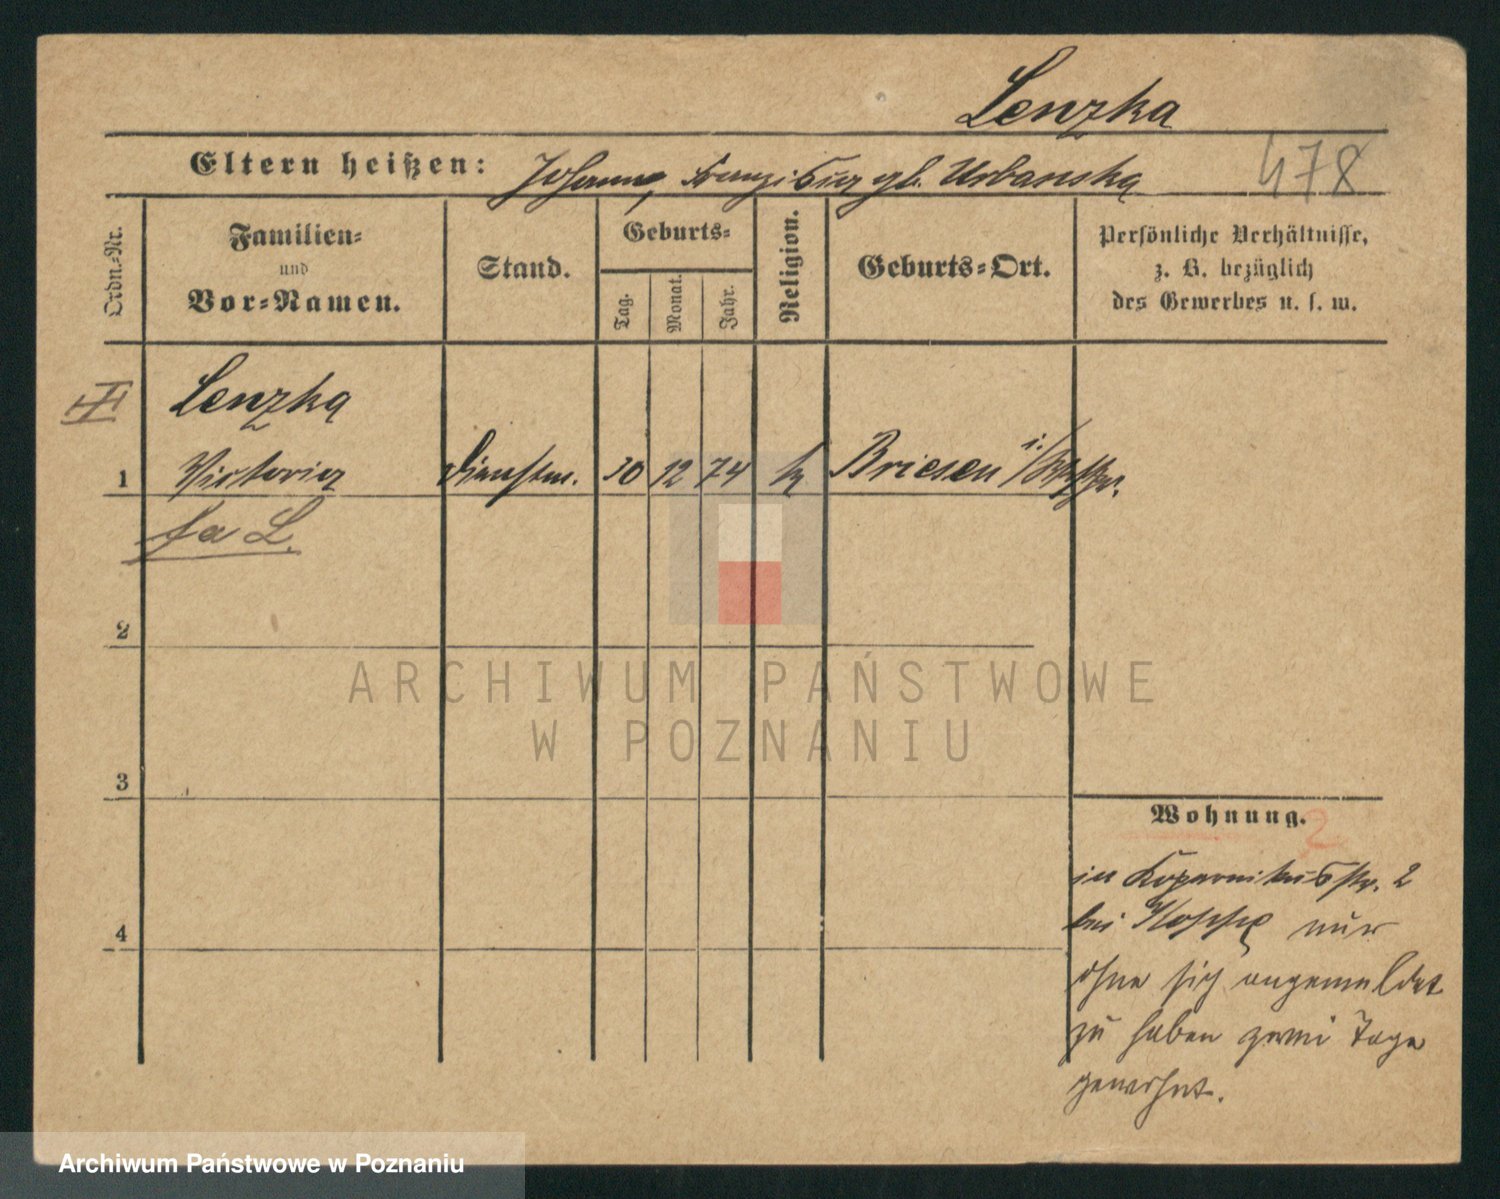 Lenzka
Eltern heißen: Johann, Franziska gb. Urbanska
478
Ordn.-Nr.
Familien-
und
Vor-Namen.
Stand.
Geburts-
Tag.
Monat.
Jahr.
Religion.
Geburts-Ort.
Persönliche Verhältnisse,
z. B. bezüglich
des Gewerbes u. s. w.
Lenzka
1 Victoria Dienstm. 30 12 74 k Briesen i/Westpr.
L.
2
3
4
Wohnung.
2
in Kopernikusstr. 2
bei nur
ohne sich angemeldet
zu haben zwei Tage
gewohnt.
ARCHIWUM PAŃSTWOWE
W POZNANIU
Archiwum Państwowe w Poznaniu